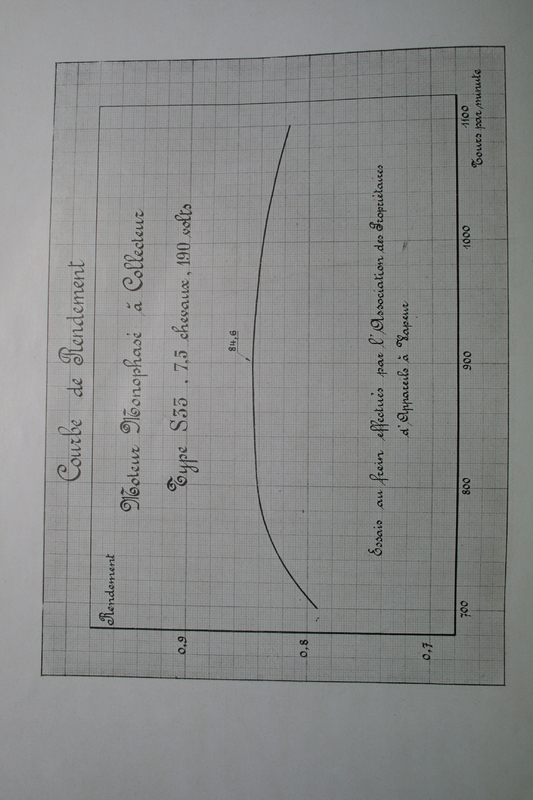 Courbe de Rendement
Moteur Monophasé à Collecteur
Type S35 . 7,5 chevaux, 190 volts
Rendement
0,9
0,8
0,7
84,6
Essais au frein effectués par l'Association des Propriétaires
d'Appareils à Vapeur
700
800
900
1000
1100
Tours par minute